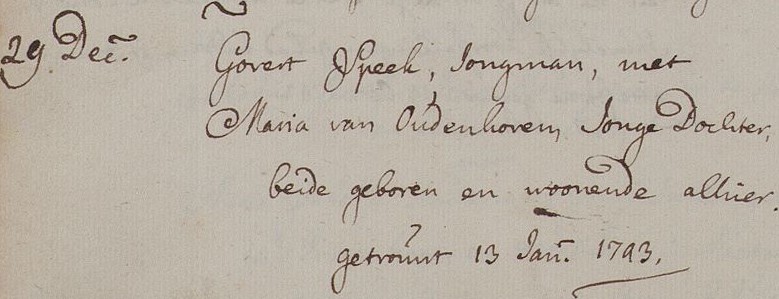 29 Dec. Govert Speek, Jongman, met
Maria van Oudenhoven, Jonge Dochter,
beide geboren en woonende alhier.
getrouwt 13 Jan. 1793.